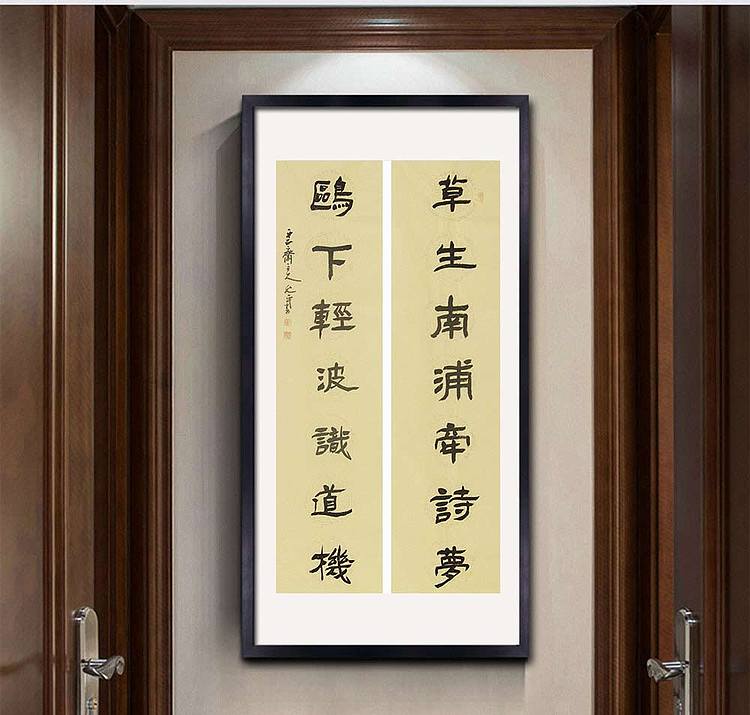 草生南浦牽詩夢
鷗下輕波識道機